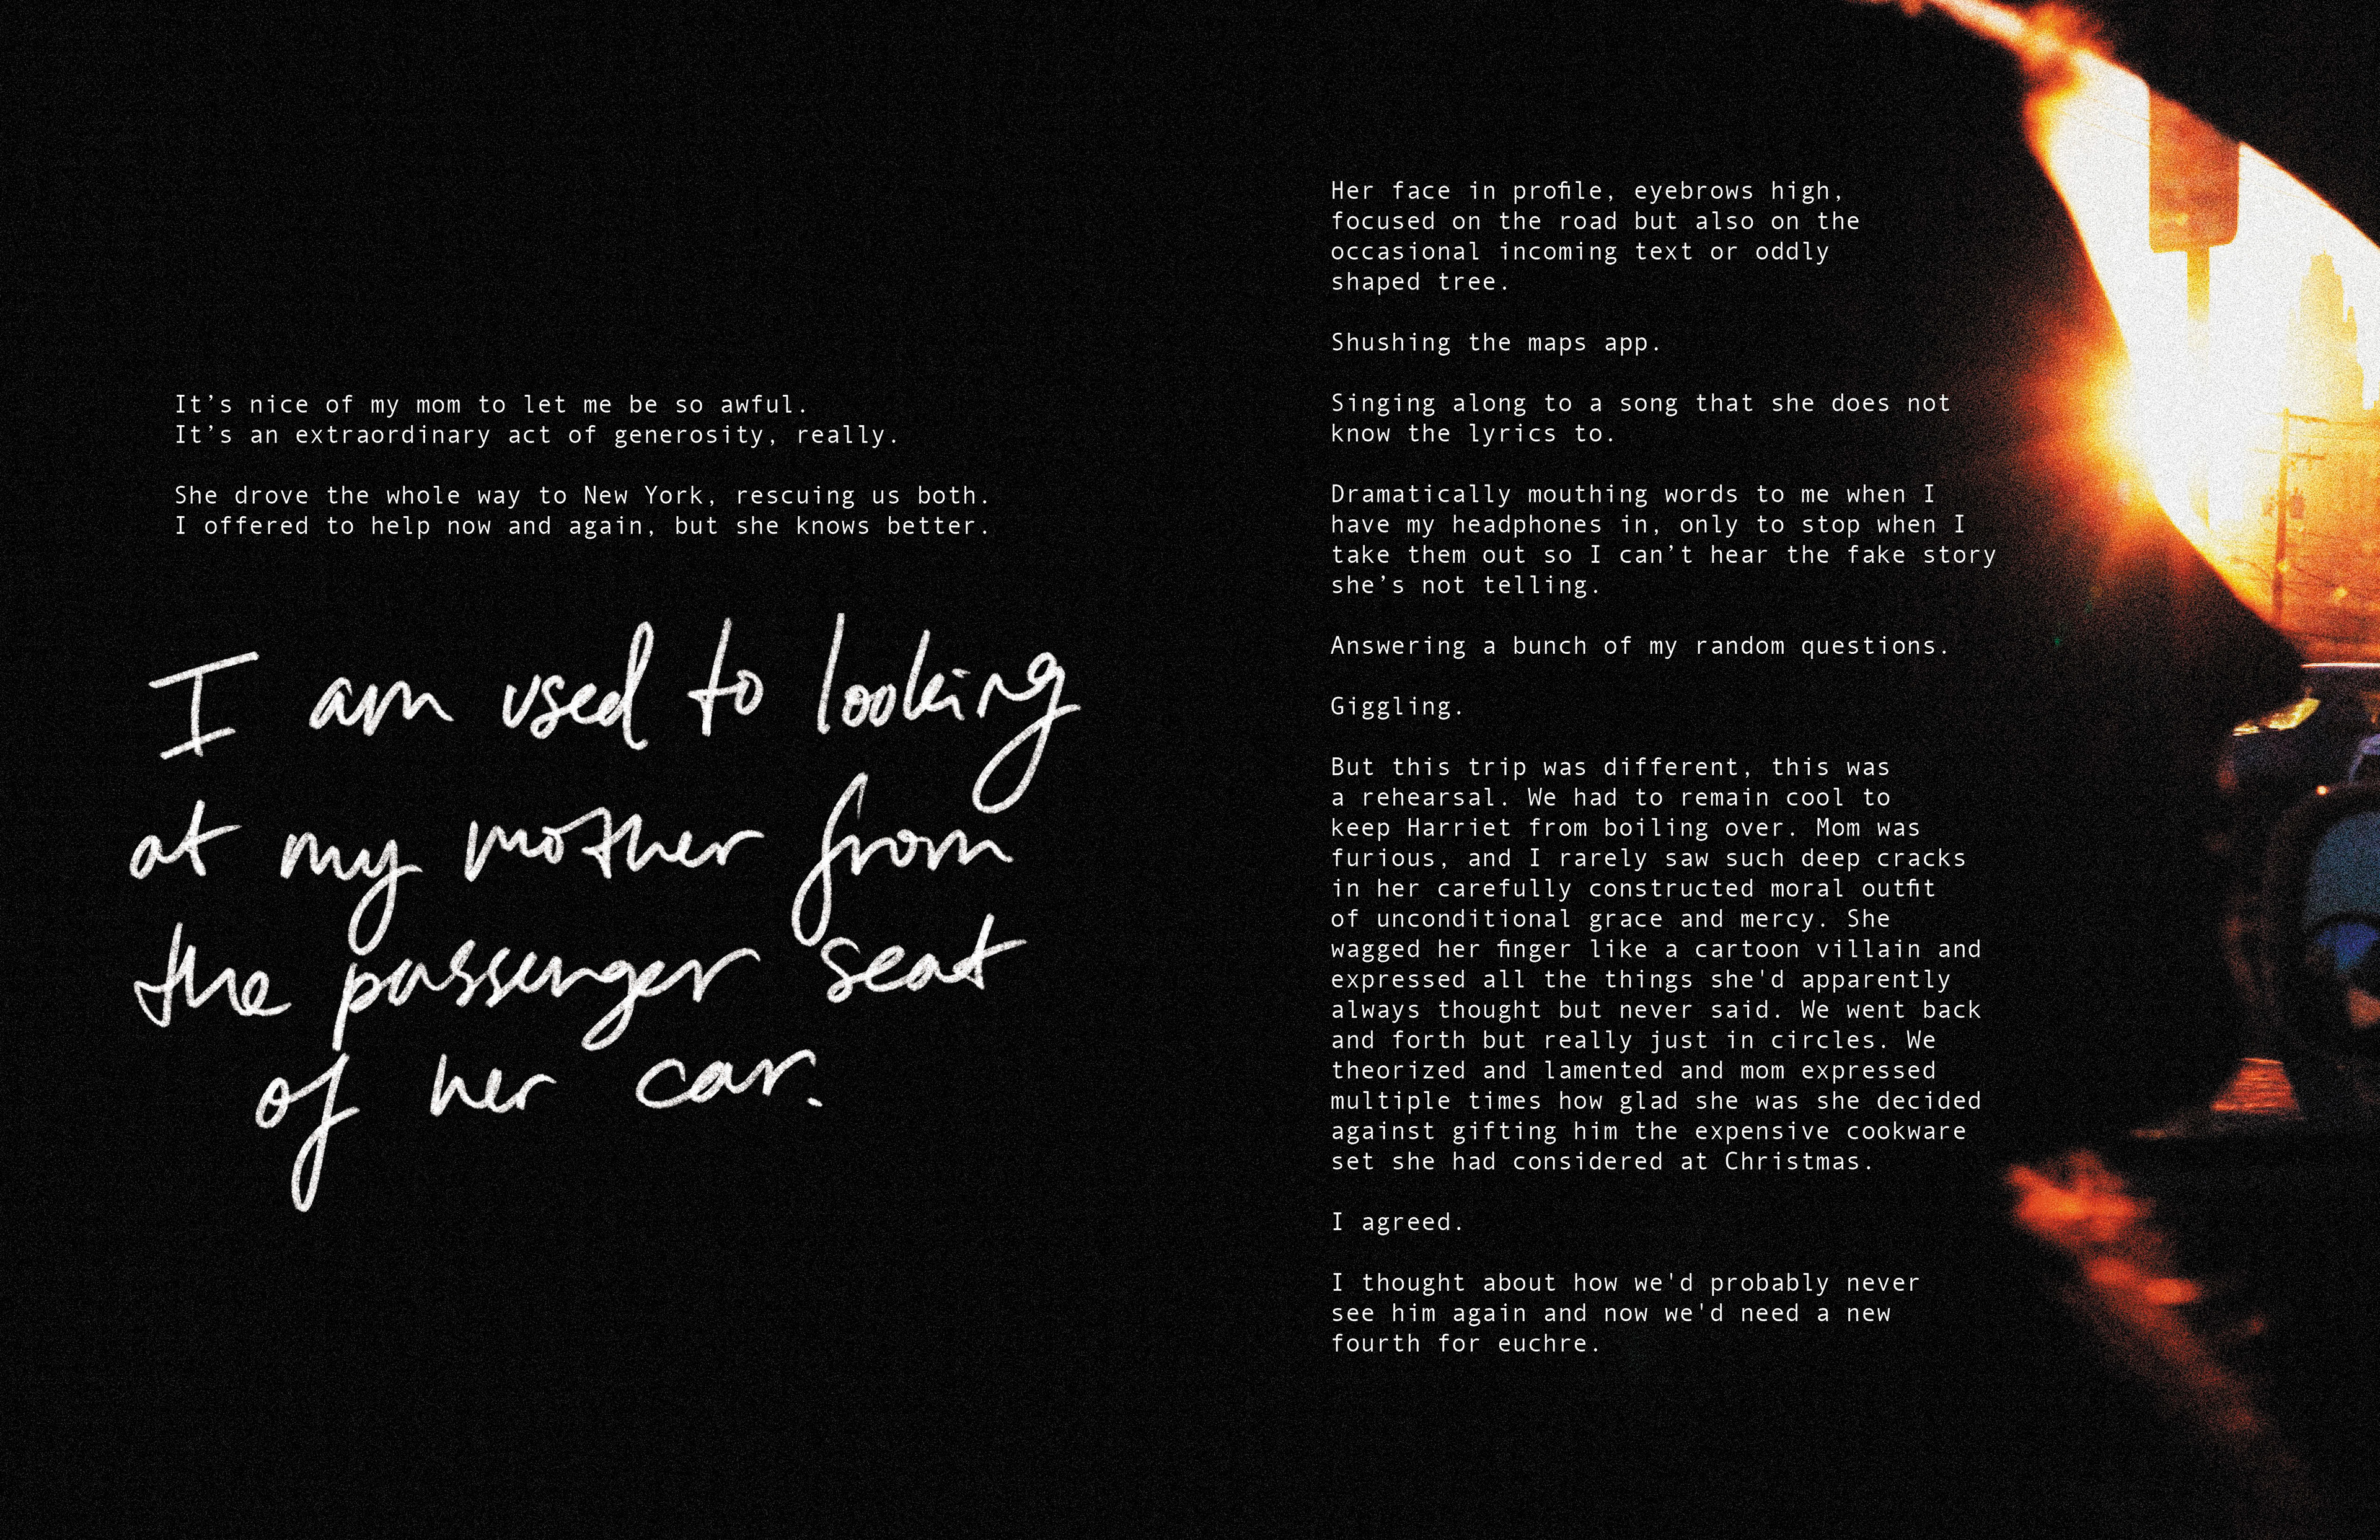 It’s nice of my mom to let me be so awful.
It’s an extraordinary act of generosity, really.
She drove the whole way to New York, rescuing us both.
I offered to help now and again, but she knows better.
I am used to looking
at my mother from
the passenger seat
of her car.
Her face in profile, eyebrows high,
focused on the road but also on the
occasional incoming text or oddly
shaped tree.
Shushing the maps app.
Singing along to a song that she does not
know the lyrics to.
Dramatically mouthing words to me when I
have my headphones in, only to stop when I
take them out so I can’t hear the fake story
she’s not telling.
Answering a bunch of my random questions.
Giggling.
But this trip was different, this was
a rehearsal. We had to remain cool to
keep Harriet from boiling over. Mom was
furious, and I rarely saw such deep cracks
in her carefully constructed moral outfit
of unconditional grace and mercy. She
wagged her finger like a cartoon villain and
expressed all the things she'd apparently
always thought but never said. We went back
and forth but really just in circles. We
theorized and lamented and mom expressed
multiple times how glad she was she decided
against gifting him the expensive cookware
set she had considered at Christmas.
I agreed.
I thought about how we'd probably never
see him again and now we'd need a new
fourth for euchre.